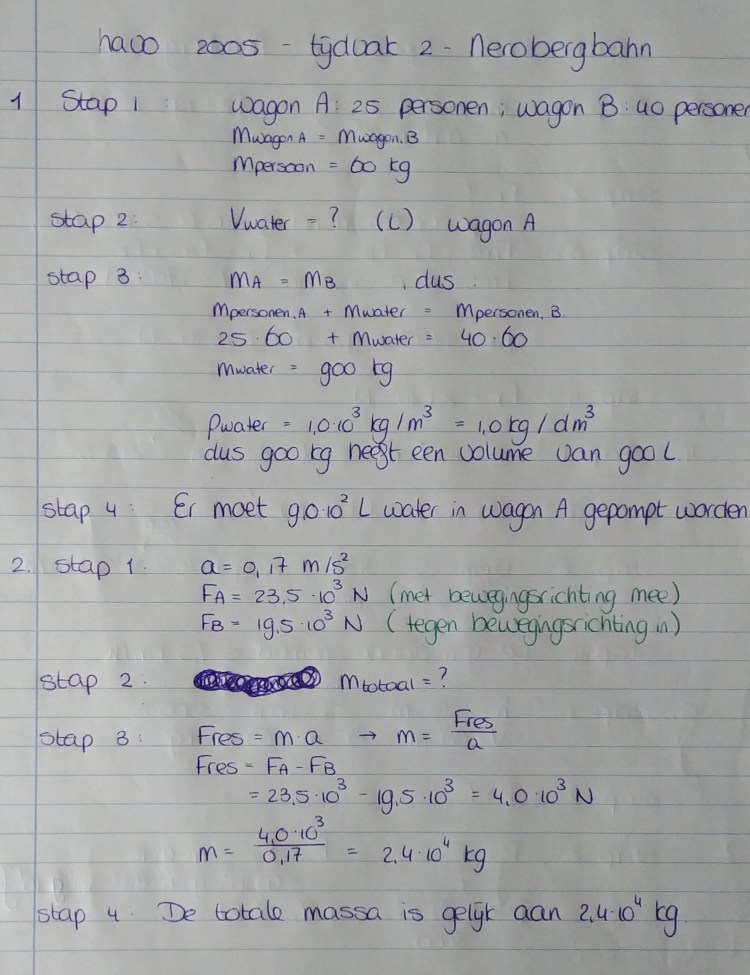 havo 2005 - tijdvak 2 - Nerobergbahn
1 Stap 1: wagon A: 25 personen; wagon B: 40 personen
Mwagon A = Mwagon, B
Mpersoon = 60 kg
Stap 2: Vwater = ? (L) wagon A
stap 3: MA = MB , dus:
Mpersonen, A + Mwater = Mpersonen, B.
25·60 + Mwater = 40·60
Mwater = 900 kg
ρwater = 1,0·10³ kg/m³ = 1,0 kg/dm³
dus 900 kg heeft een volume van 900 L
stap 4: Er moet 9,0·10² L water in wagon A gepompt worden
2. Stap 1: a = 0,17 m/s²
FA = 23,5·10³ N (met bewegingsrichting mee)
FB = 19,5·10³ N (tegen bewegingsrichting in)
stap 2: Mtotaal = ?
stap 3: Fres = m·a → m = Fres/a
Fres = FA - FB
= 23,5·10³ - 19,5·10³ = 4,0·10³ N
m = 4,0·10³/0,17 = 2,4·10⁴ kg
stap 4: De totale massa is gelijk aan 2,4·10⁴ kg.